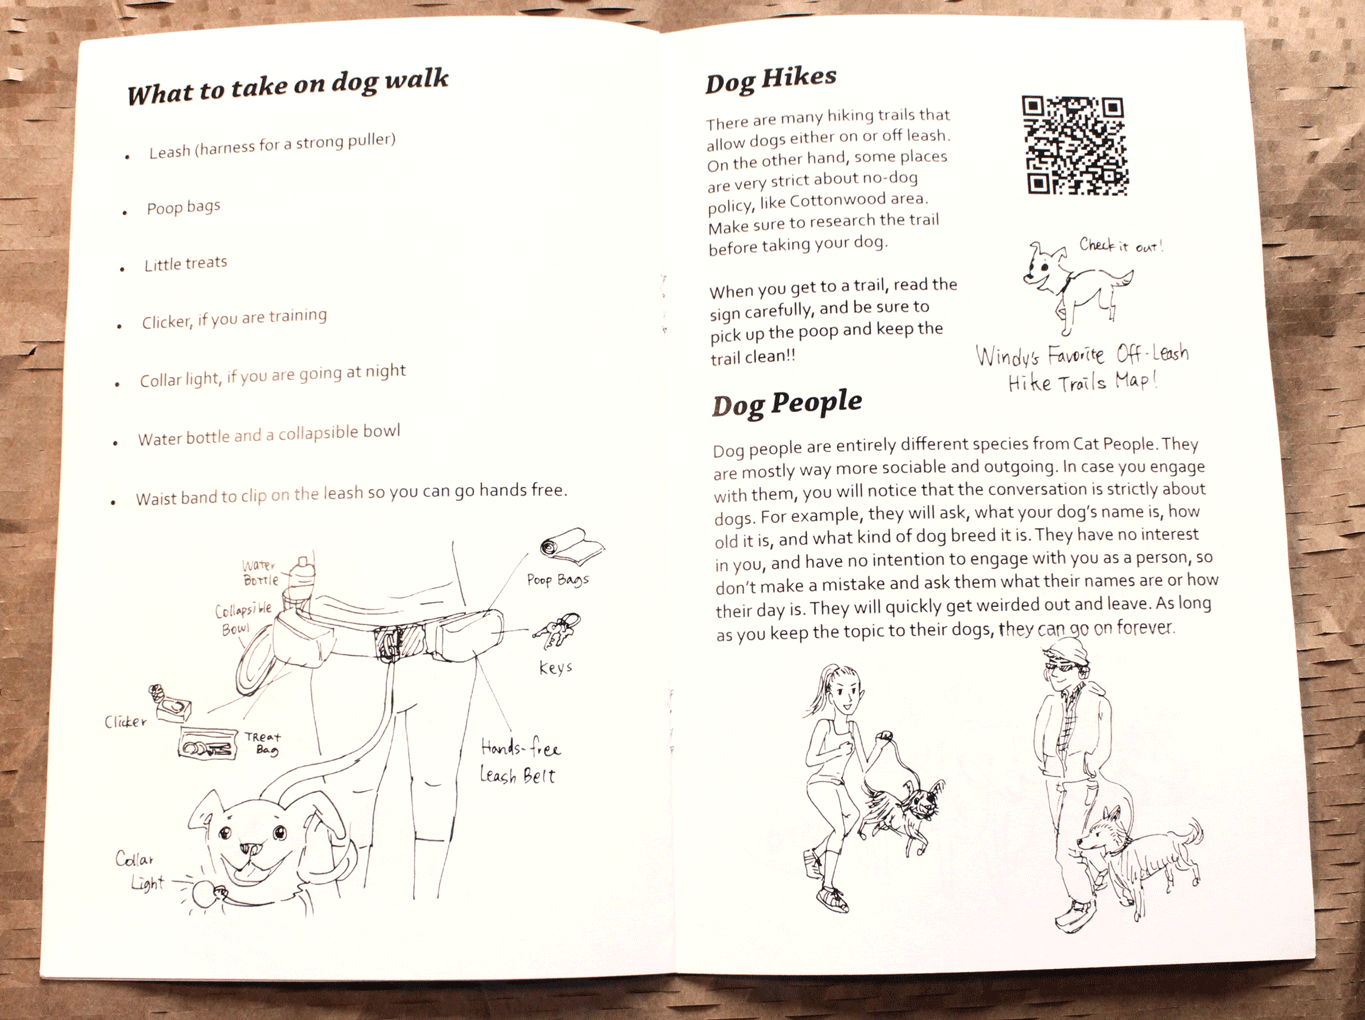 What to take on dog walk
• Leash (harness for a strong puller)
• Poop bags
• Little treats
• Clicker, if you are training
• Collar light, if you are going at night
• Water bottle and a collapsible bowl
• Waist band to clip on the leash so you can go hands free.
Water
Bottle
Collapsible
Bowl
Poop Bags
Keys
Clicker
Treat
Bag
Hands-free
Leash Belt
Collar
Light
Dog Hikes
There are many hiking trails that
allow dogs either on or off leash.
On the other hand, some places
are very strict about no-dog
policy, like Cottonwood area.
Make sure to research the trail
before taking your dog.
When you get to a trail, read the
sign carefully, and be sure to
pick up the poop and keep the
trail clean!!
Check it out!
Windy's Favorite Off-Leash
Hike Trails Map!
Dog People
Dog people are entirely different species from Cat People. They
are mostly way more sociable and outgoing. In case you engage
with them, you will notice that the conversation is strictly about
dogs. For example, they will ask, what your dog's name is, how
old it is, and what kind of dog breed it is. They have no interest
in you, and have no intention to engage with you as a person, so
don't make a mistake and ask them what their names are or how
their day is. They will quickly get weirded out and leave. As long
as you keep the topic to their dogs, they can go on forever.